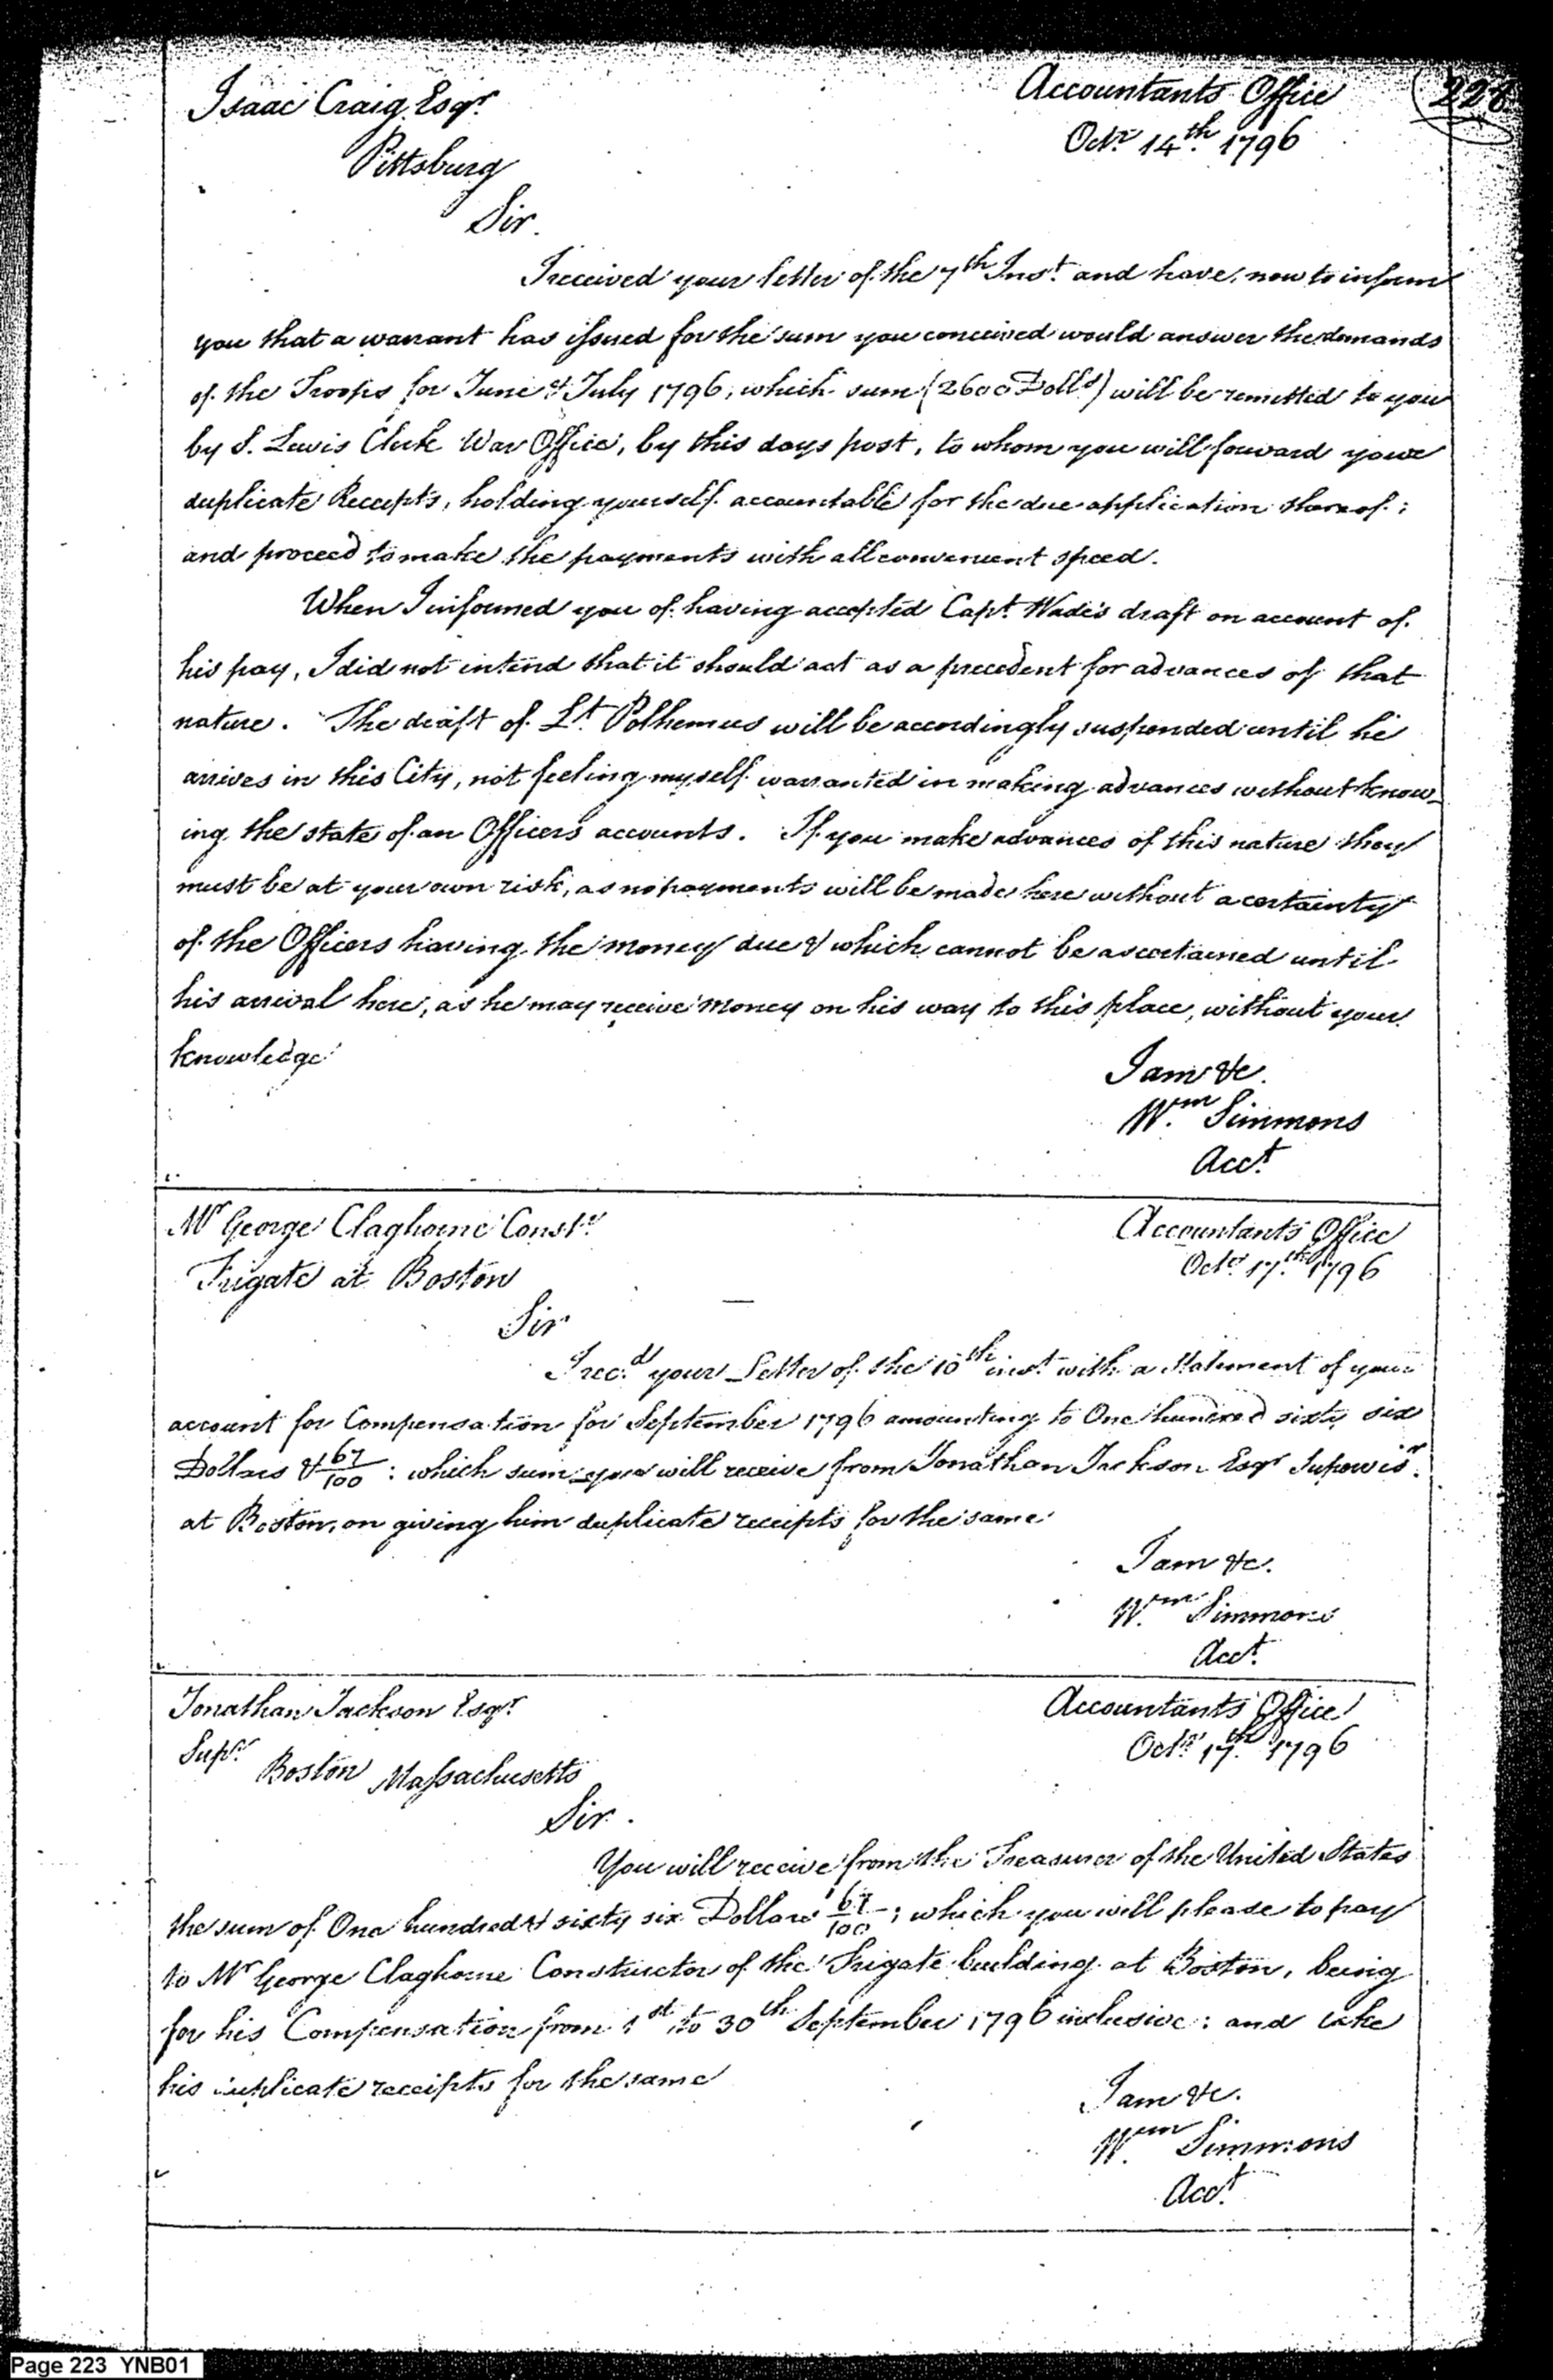 Isaac Craig Esqr.
Accountants Office
Octr. 14th. 1796
Pittsburg
Sir.
I received your letter of the 7th Inst. and have, now to inform
you that a warrant has issued for the sum you conceived would answer the demands
of the Troops for June & July 1796, which sum (2600 Dolls) will be remitted to you
by S. Lewis Clerk War Office, by this days post, to whom you will forward your
duplicate Receipts, holding yourself accountable for the due application thereof;
and proceed to make the payments with all convenient speed.
When I informed you of having accepted Capt. Wade's draft on account of
his pay, I did not intend that it should act as a precedent for advances of that
nature. The draft of Lt. Polhemus will be accordingly suspended until he
arrives in this City, not feeling myself warranted in making advances without know-
ing the state of an Officers accounts. If you make advances of this nature they
must be at your own risk, as no payments will be made here without a certainty
of the Officers having the money due & which cannot be ascertained until
his arrival here, as he may receive money on his way to this place, without your
knowledge
I am &c.
Wm. Simmons
Acct.
Mr George Claghorne Constr.
Accountants Office
Frigate at Boston
Octr. 17th. 1796
Sir
I rec.d your Letter of the 10th inst. with a Statement of your
account for Compensation for September 1796 amounting to One hundred sixty six
Dollars & 67/100 : which sum you will receive from Jonathan Jackson Esqr Supervisr.
at Boston, on giving him duplicate receipts for the same
I am &c.
Wm. Simmons
Acct.
Jonathan Jackson Esqr.
Accountants Office
Supr. Boston Massachusetts
Octr. 17th. 1796
Sir.
You will receive from the Treasurer of the United States
the sum of One hundred & sixty six Dollars 67/100; which you will please to pay
to Mr George Claghorne Constructor of the Frigate building at Boston, being
for his Compensation from 1st to 30th September 1796 inclusive: and take
his duplicate receipts for the same
I am &c.
Wm. Simmons
Acct.
Page 223 YNB01